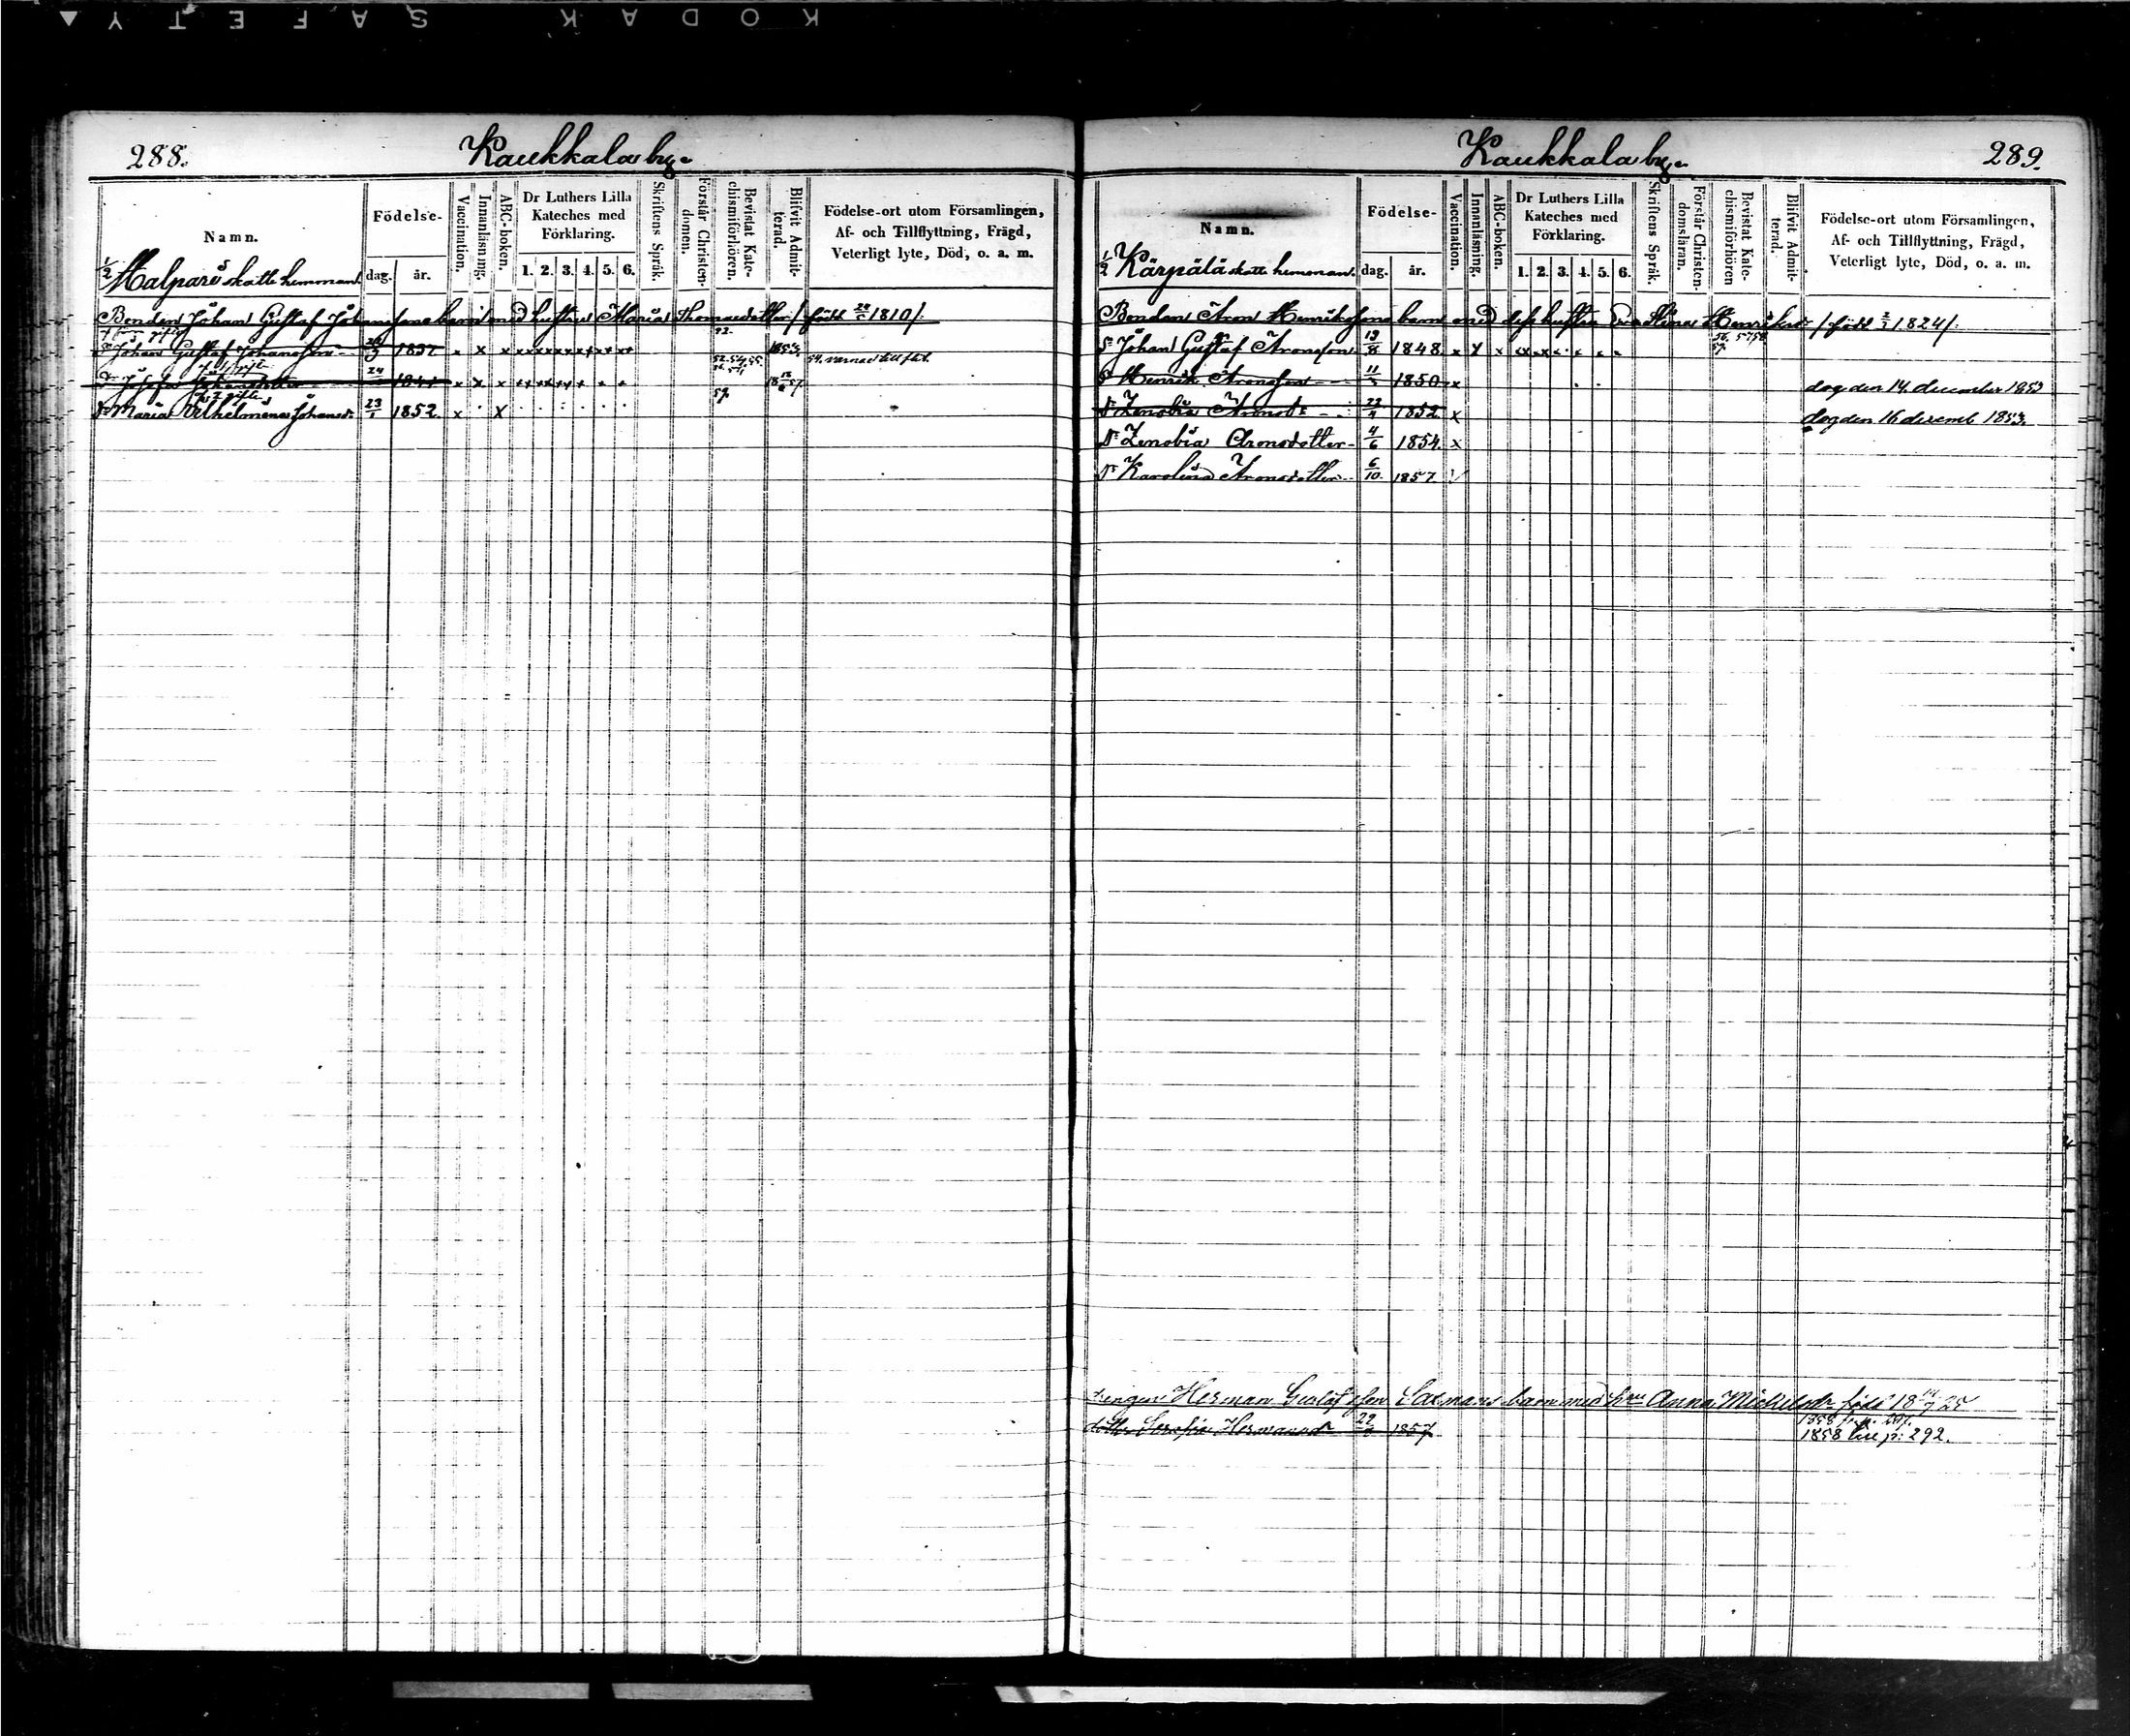 KODAK SAFETY
288.
Kaukkala by.
Namn.
Födelse-
dag. år.
Vaccination.
Innanläsning.
ABC-boken.
Dr Luthers Lilla Kateches med Förklaring.
1. 2. 3. 4. 5. 6.
Skriftens Språk.
Förstår Christendomen.
Bevistat Katechismiförhören.
Blifvit Admitterad.
Födelse-ort utom Församlingen,
Af- och Tillflyttning, Frägd,
Veterligt lyte, Död, o. a. m.
1/2 Malpars skatte hemman
Bonden Johan Gustaf Johanssons barn med hustrun Maria Thomasdotter / född 1810/.
Sn Johan Gustaf Johansson 1837 x x 1853
Dr Josefa Johansdotter 24 x x 57
57
Dr Maria Vilhelmina Johansdr 23/1 1852 x x
289.
Kaukkala by.
Namn.
Födelse-
dag. år.
Vaccination.
Innanläsning.
ABC-boken.
Dr Luthers Lilla Kateches med Förklaring.
1. 2. 3. 4. 5. 6.
Skriftens Språk.
Förstår Christendomsläran.
Bevistat Katechismiförhören
Blifvit Admitterad.
Födelse-ort utom Församlingen,
Af- och Tillflyttning, Frägd,
Veterligt lyte, Död, o. a. m.
1/2 Kärpälä skatte hemman.
Bonden Aron Henrikssons barn med dess hustru Henriksdr / född 1824/.
Sn Johan Gustaf Aronsson 13/8 1848. x x x
Sn Henrik Aronsson 1850 x dog den 14 december 1853
Dr Zenobia Aronsdr 1852 x dog den 16 decemb 1853.
Dr Zenobia Aronsdotter 4/6 1854. x
Dr Karolina Aronsdotter 6/10 1857.
drengen Herman Gustafsson barn med hru Anna Michelsdr född 18 25
dotter Serafia Hermansdr 1857
1858 p: 292.